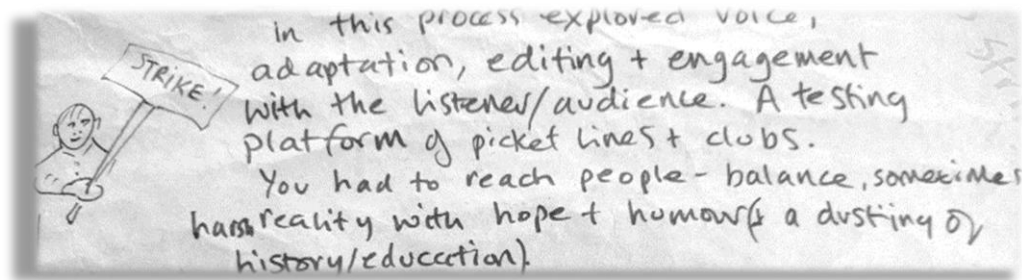 in this process explored voice,
STRIKE!
adaptation, editing + engagement
with the listener/audience. A testing
platform of picket lines + clubs.
You had to reach people - balance, sometimes
harsh reality with hope + humour (& a dusting of
history/education).